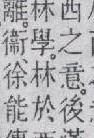 西之意。後
林學。林於
離衞徐能